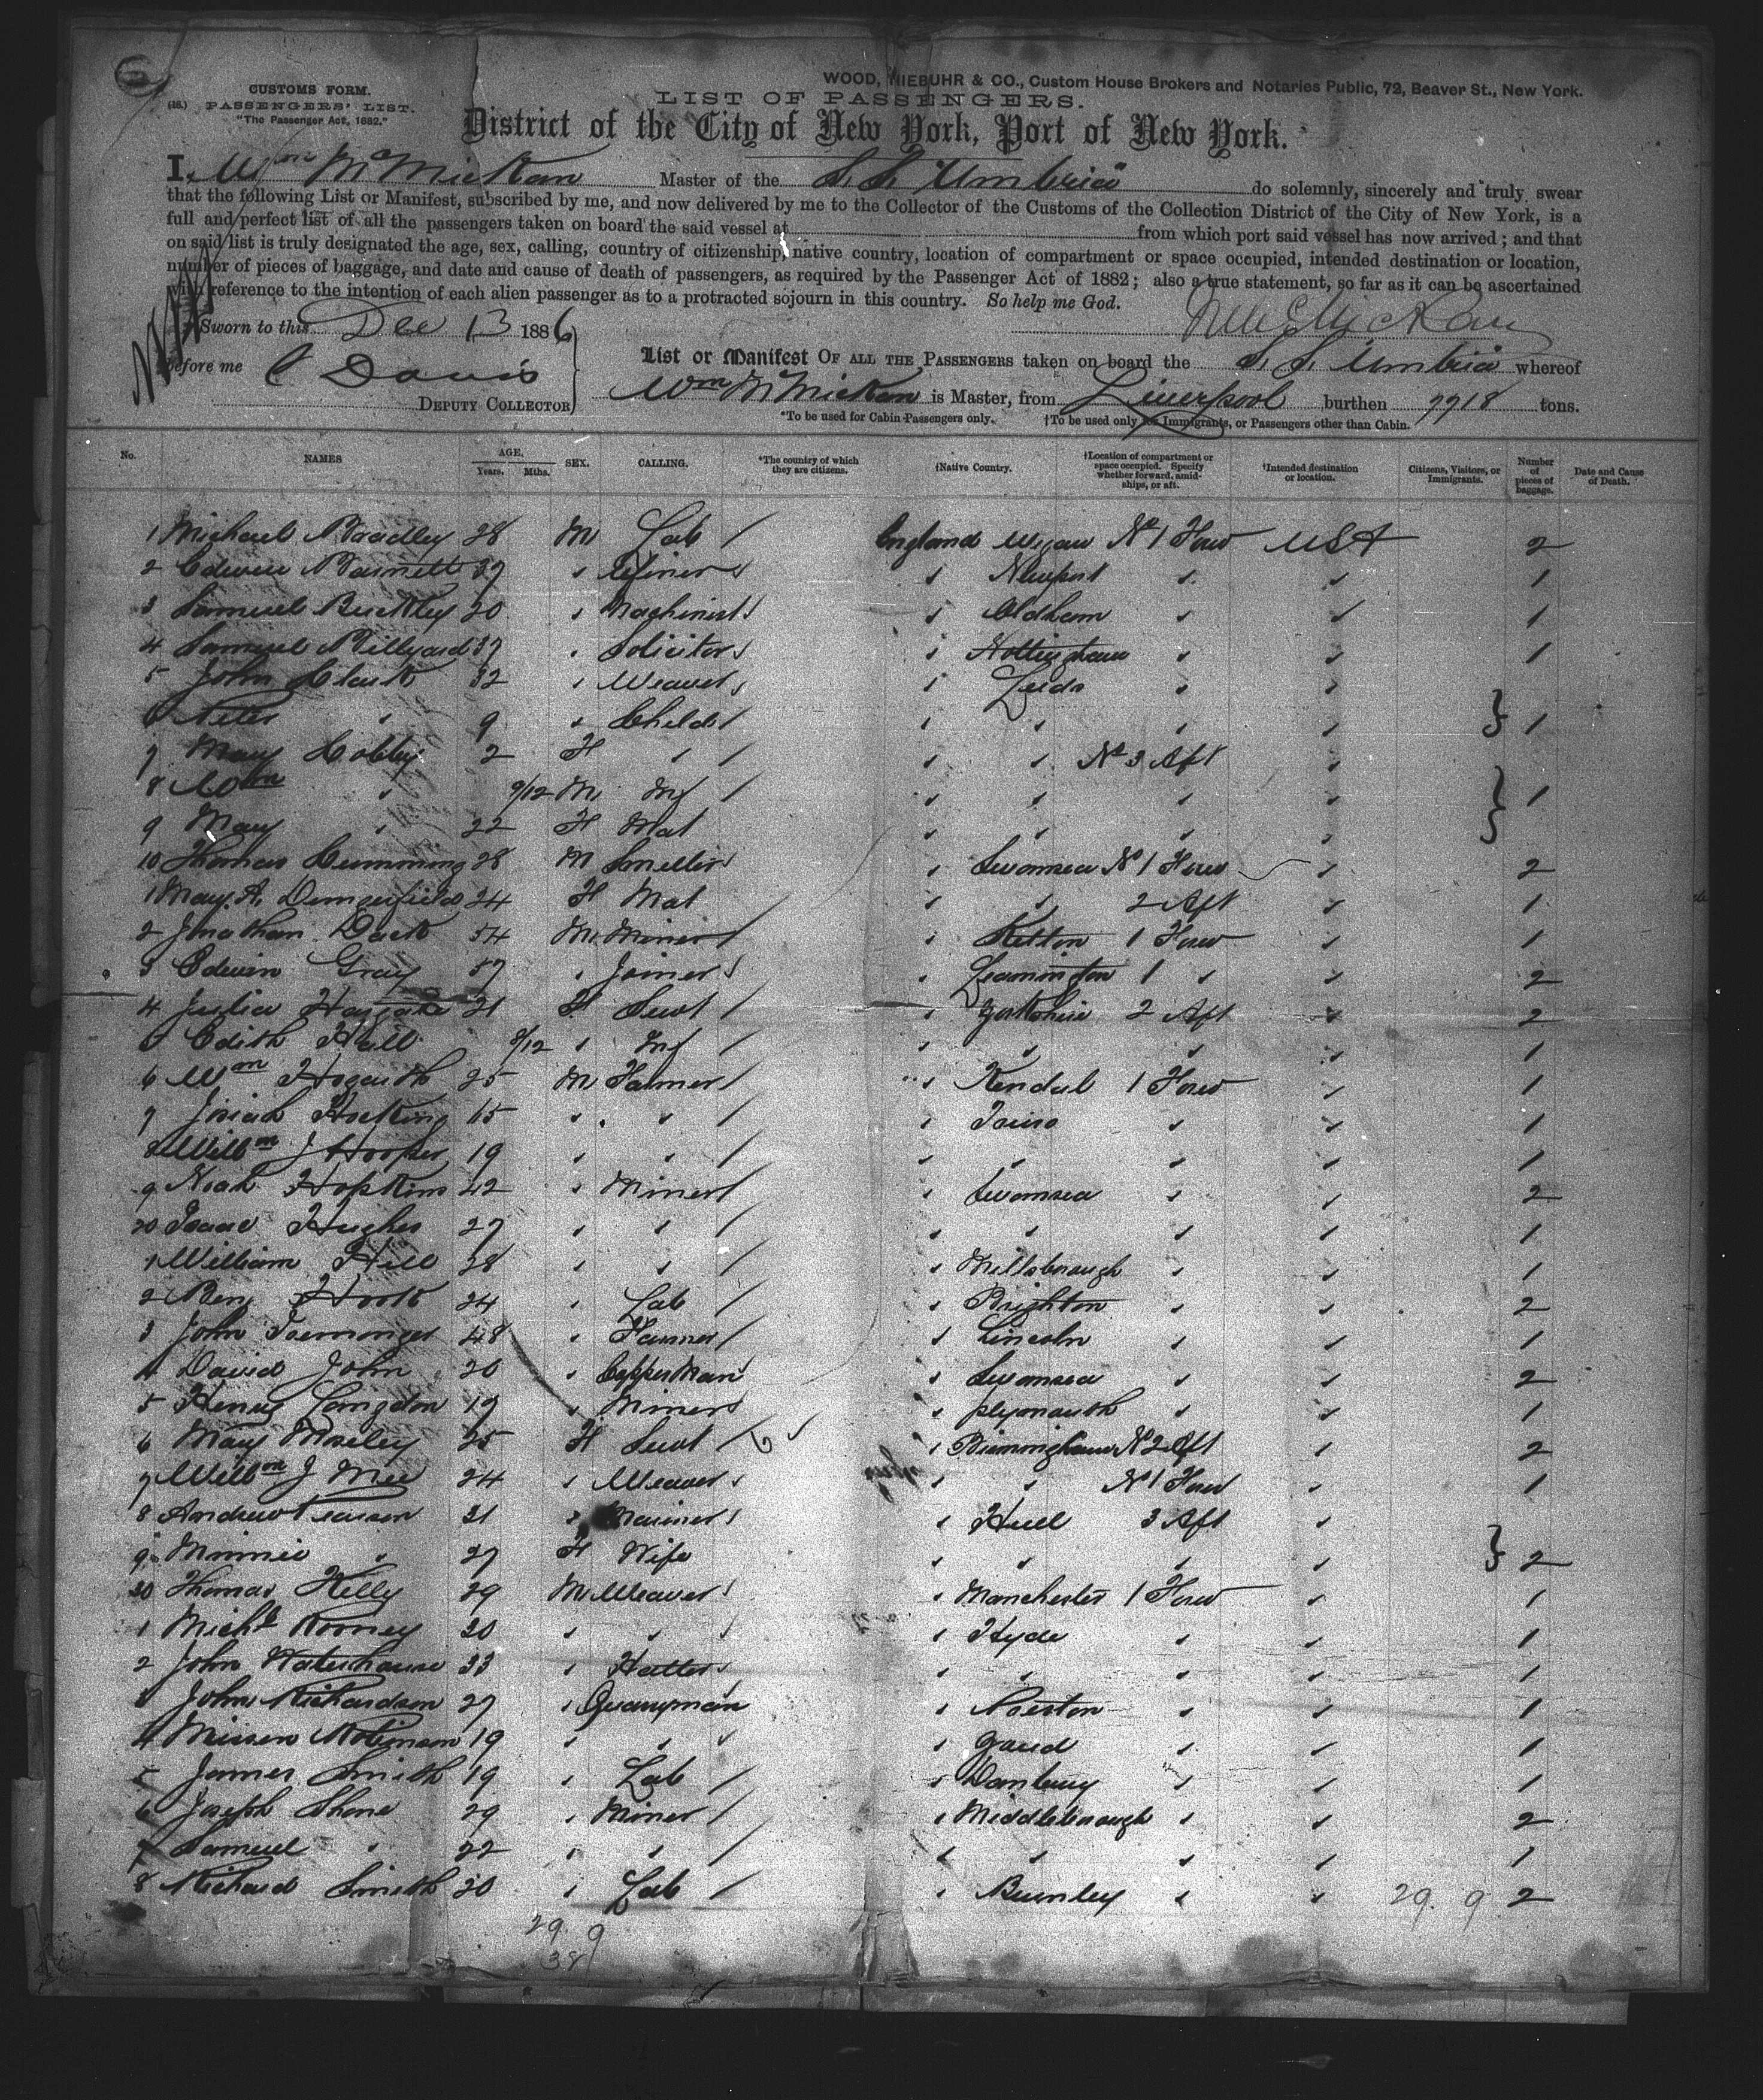 CUSTOMS FORM.
(18.) PASSENGERS' LIST.
"The Passenger Act, 1882."
WOOD, NIEBUHR & CO., Custom House Brokers and Notaries Public, 72, Beaver St., New York.
LIST OF PASSENGERS.
District of the City of New York, Port of New York.
I, Wm McMickan Master of the S.S. "Umbria" do solemnly, sincerely and truly swear
that the following List or Manifest, subscribed by me, and now delivered by me to the Collector of the Customs of the Collection District of the City of New York, is a
full and perfect list of all the passengers taken on board the said vessel at from which port said vessel has now arrived; and that
on said list is truly designated the age, sex, calling, country of citizenship, native country, location of compartment or space occupied, intended destination or location,
number of pieces of baggage, and date and cause of death of passengers, as required by the Passenger Act of 1882; also a true statement, so far as it can be ascertained
with reference to the intention of each alien passenger as to a protracted sojourn in this country. So help me God.
Sworn to this Dec 13 1886
Before me C Davis
DEPUTY COLLECTOR
Wm McMickan
List or Manifest OF ALL THE PASSENGERS taken on board the S.S. Umbria whereof
Wm McMickan is Master, from Liverpool burthen 7718 tons.
*To be used for Cabin Passengers only. †To be used only for Immigrants, or Passengers other than Cabin.
No. NAMES AGE. Years. Mths. SEX. CALLING. *The country of which they are citizens. †Native Country. †Location of compartment or space occupied. Specify whether forward, amidships, or aft. †Intended destination or location. Citizens, Visitors, or Immigrants. Number of pieces of baggage. Date and Cause of Death.
1 Michael Bradley 28 M Lab / England Wigan No 1 Forw USA 2
2 Edwin Barnett 37 " " Newport " " 1
3 Samuel Buckley 20 " Machinist / " Oldham " " 1
4 Samuel Billyard 37 " Solicitor / " Nottingham " " 1
5 John Clark 32 " Weaver / " Leeds " "
6 Peter " 9 " Child / " " " " } 1
7 Mary Cobley 2 F " / " " No 3 Aft "
8 Wm " 9/12 M Inf / " " " " } 1
9 Mary " 22 F Mat " " " "
10 Thomas Cumming 28 M Smelter / " Swansea No 1 Forw " 2
1 Mary A. Dangerfield 24 F Mat / " " 2 Aft " 1
2 Jonathan Dack 54 M Miner / " Ketton 1 Forw " 1
3 Edwin Gray 57 " Joiner / " Leamington 1 " " 2
4 Julia 21 F Servt / " Yorkshire 2 Aft " 2
5 Edith Hall 8/12 " Inf / " " " " 1
6 Wm Hogarth 25 M Farmer / " Kendal 1 Forw " 1
7 Josiah Hocking " " / " Truro " " 1
8 Willm J Hooper 19 " " / " " " " 1
9 Noah Hopkins 42 " Miner / " Swansea " " 2
20 Isaac Hughes 27 " " / " " " " 1
1 William Hill 28 " " / " " " 1
2 Benj 24 " Lab / " Brighton " " 2
3 John Iremonger 48 " Farmer / " Lincoln " " 1
4 David John 20 " Copper Man " Swansea " " 2
5 Henry Langdon 19 " Miner / " Plymouth " " 1
6 Mary Moseley 25 F Servt / " Birmingham No 2 Aft " 2
7 Willm J Mee 24 " Weaver / " " No 1 Forw " 1
8 Andrew Pearson 31 " Mariner / " Hull 3 Aft "
9 Minnie " 27 F Wife " " " " } 2
30 Thomas Kelly 29 M Weaver / " Manchester 1 Forw " 1
1 Michl Rooney 20 " " / " Hyde " " 1
2 John Waterhouse 33 " Hatter / " " " " 1
3 John Richardson 27 " Quarryman " Preston " " 1
4 Robinson 19 " " / " " " 1
5 James Smith 19 " Lab / " " " 1
6 Joseph Shone 29 " Miner / " Middleborough " 2
7 Samuel " 22 " " / " " " " 1
8 Richard Smith 30 " Lab / " Burnley " " 29. 9 2
29. 9
38